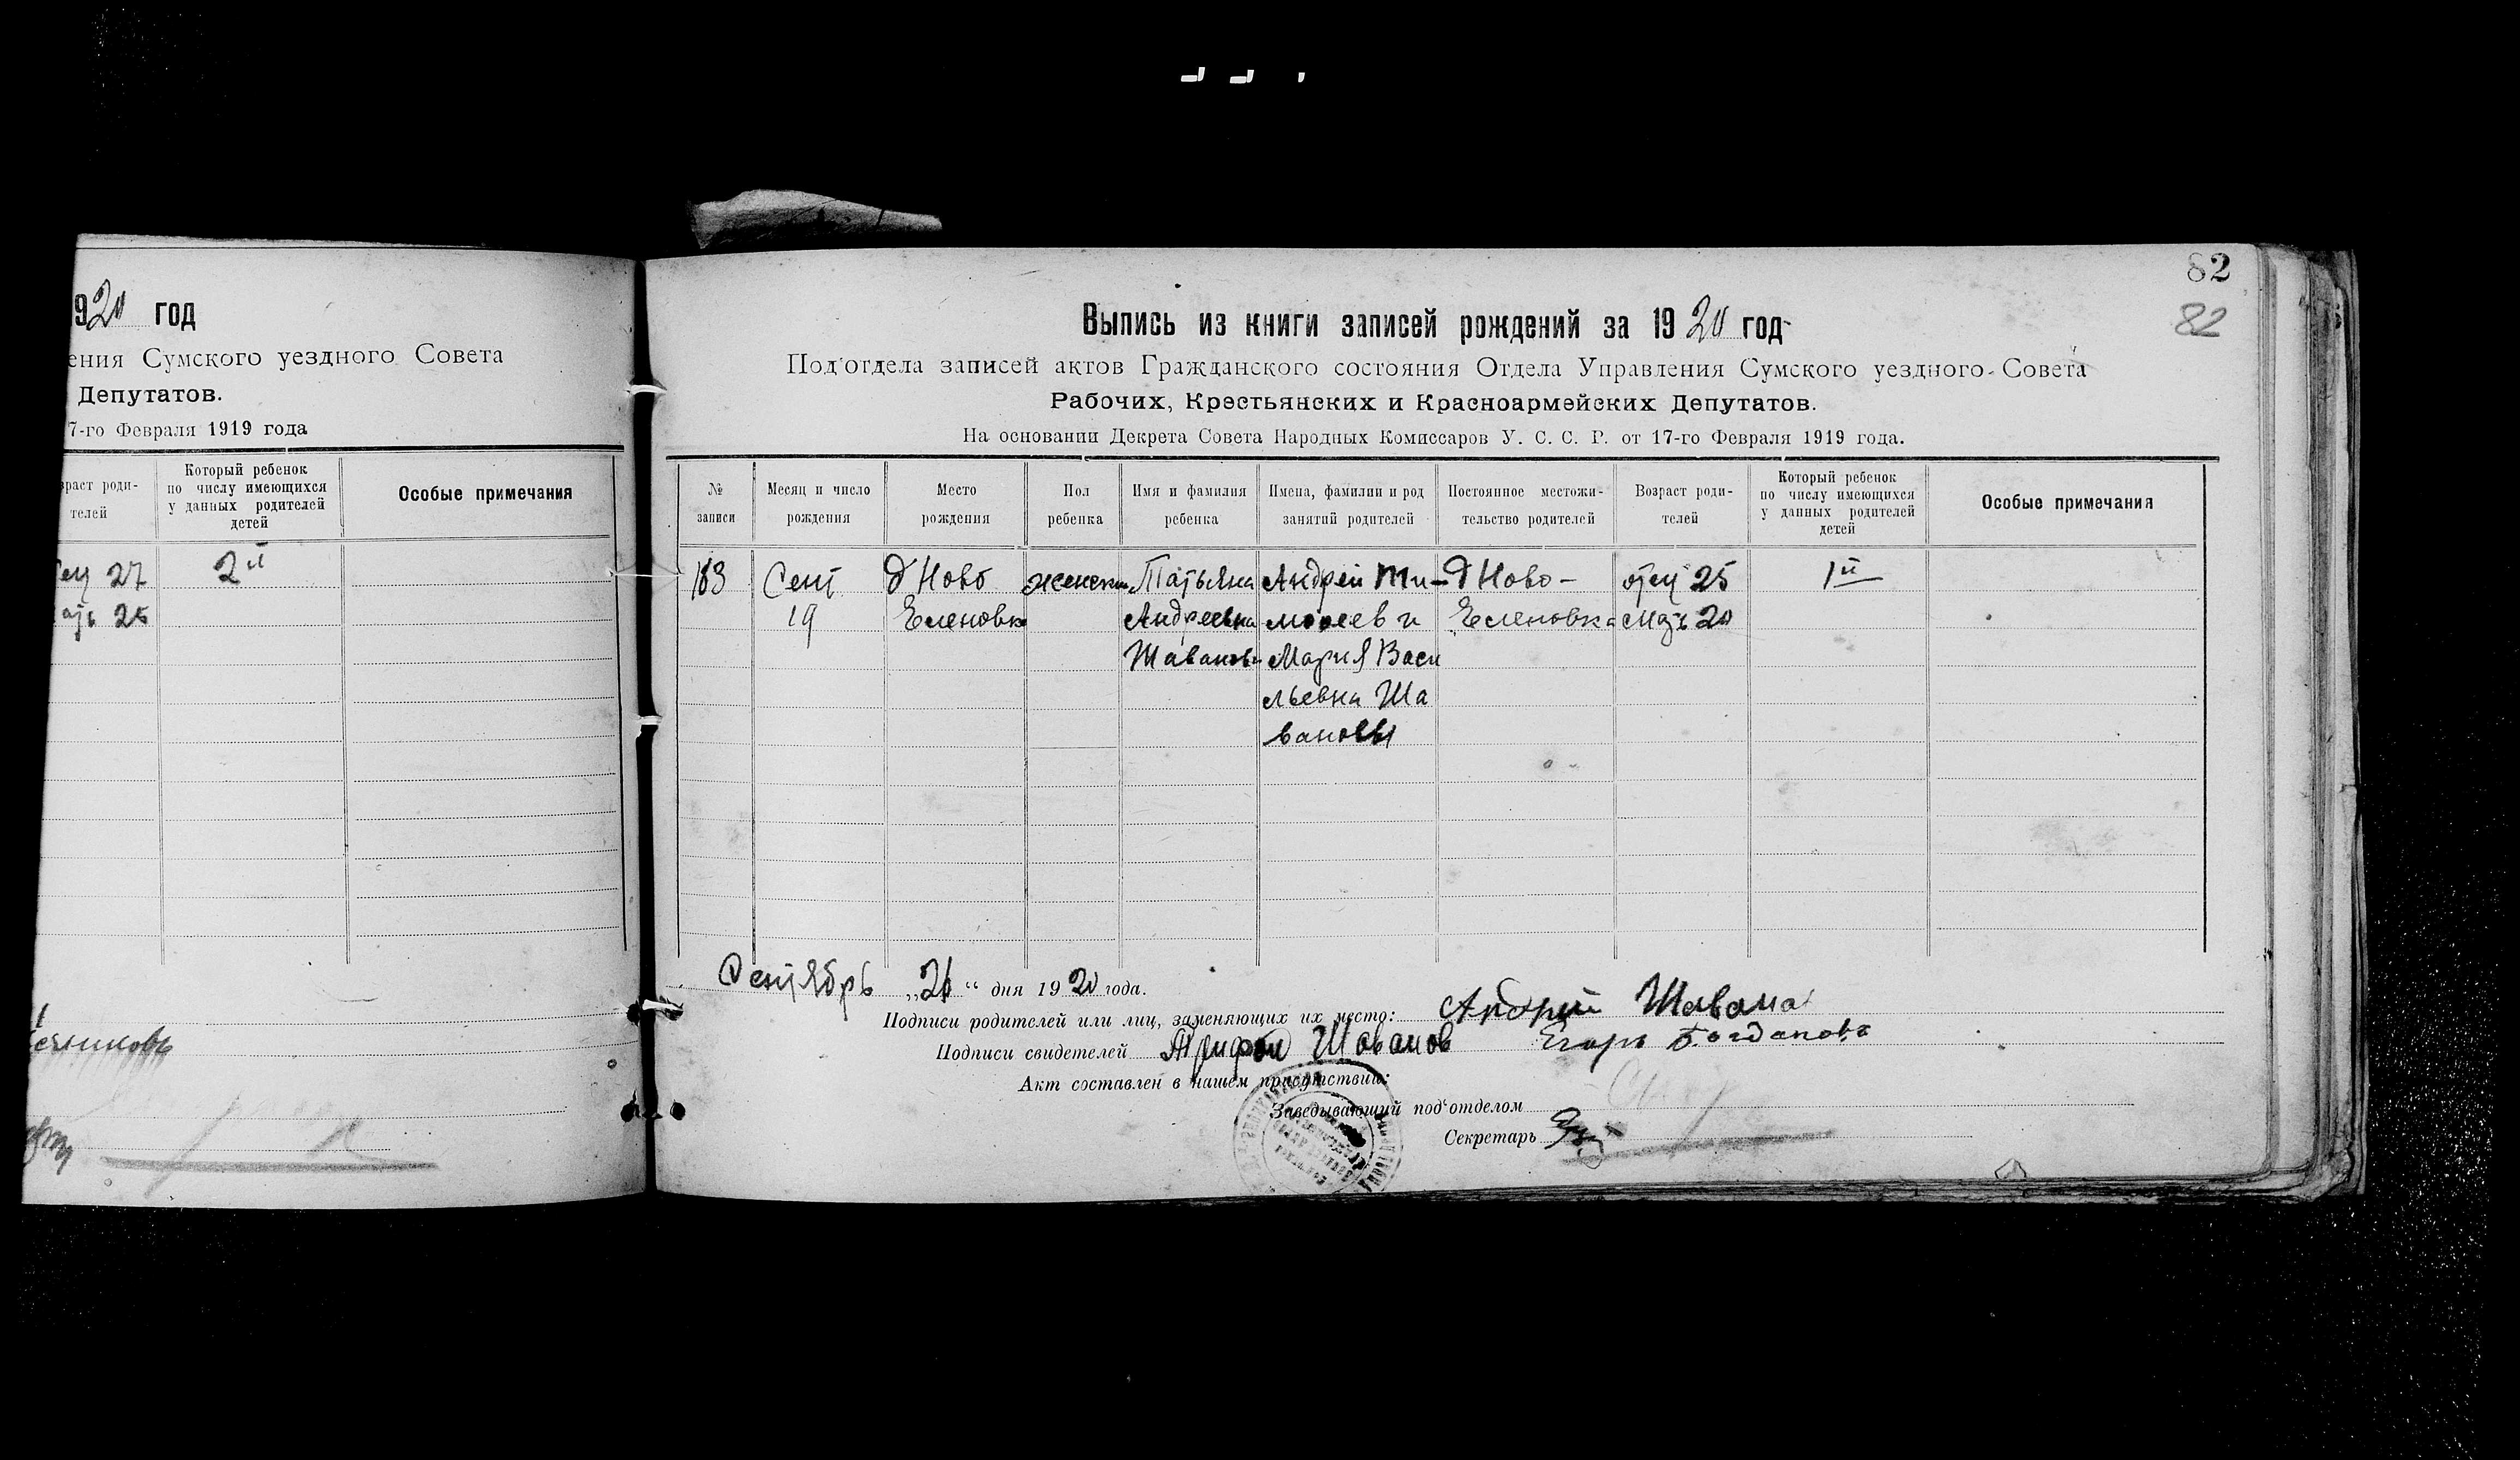 1920 год
ения Сумского уездного Совета
Депутатов.
7-го Февраля 1919 года
раст роди-
телей
Который ребенок
по числу имеющихся
у данных родителей
детей
Особые примечания
27 2й
25
82
82
Выпись из книги записей рождений за 1920 год
Под'отдела записей актов Гражданского состояния Отдела Управления Сумского уездного Совета
Рабочих, Крестьянских и Красноармейских Депутатов.
На основании Декрета Совета Народных Комиссаров У. С. С. Р. от 17-го Февраля 1919 года.
№
записи
Месяц и число
рождения
Место
рождения
Пол
ребенка
Имя и фамилия
ребенка
Имена, фамилии и род
занятий родителей
Постоянное местожи-
тельство родителей
Возраст роди-
телей
Который ребенок
по числу имеющихся
у данных родителей
детей
Особые примечания
163
Сент
19
д Ново
Еленовк
женски
Татьяна
Андреевна
Шаванов
Андрей Ти-
мофеев и
Мария Васи
льевна Ша
вановы
д Ново-
Еленовка
отец 25
мать 20
1й
Сентябрь „26“ дня 1920 года.
Подписи родителей или лиц, заменяющих их место: Андрей Шавана
Подписи свидетелей Трифон Шаванов Егоръ Богдановъ
Акт составлен в нашем присутствии:
Заведывающий под'отделом
Секретарь